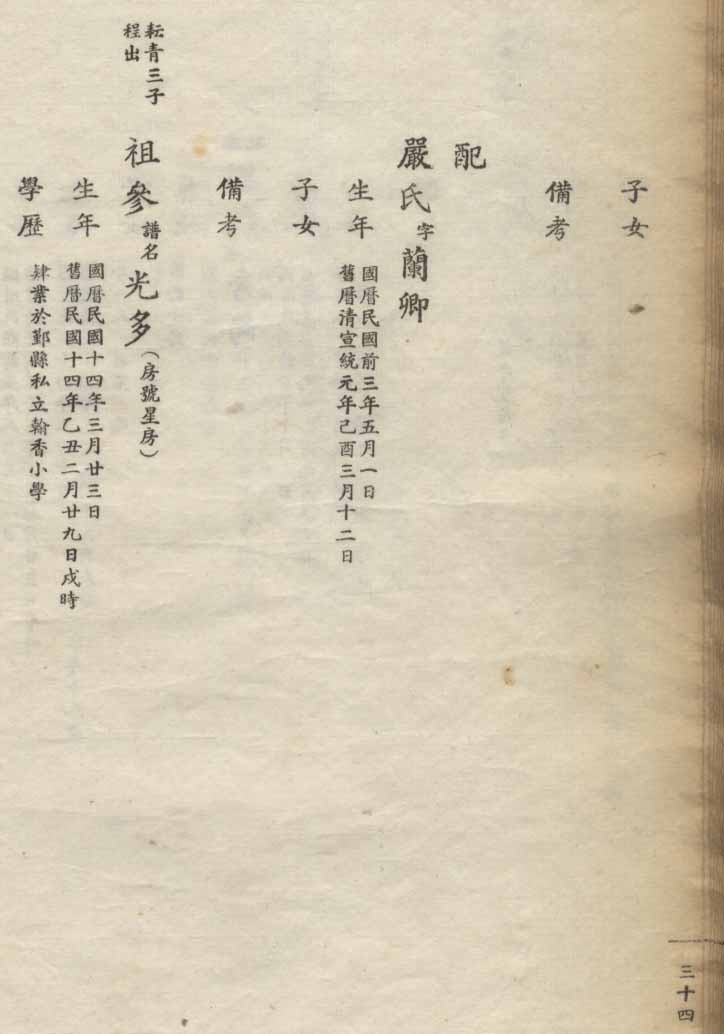 子女
備考
配
嚴氏字蘭卿
生年
國曆民國前三年五月一日
舊曆清宣統元年己酉三月十二日
子女
備考
耘青三子
程出
祖參譜名光多（房號星房）
生年
國曆民國十四年三月廿三日
舊曆民國十四年乙丑二月廿九日戌時
學歷
肄業於鄞縣私立翰香小學
三十四